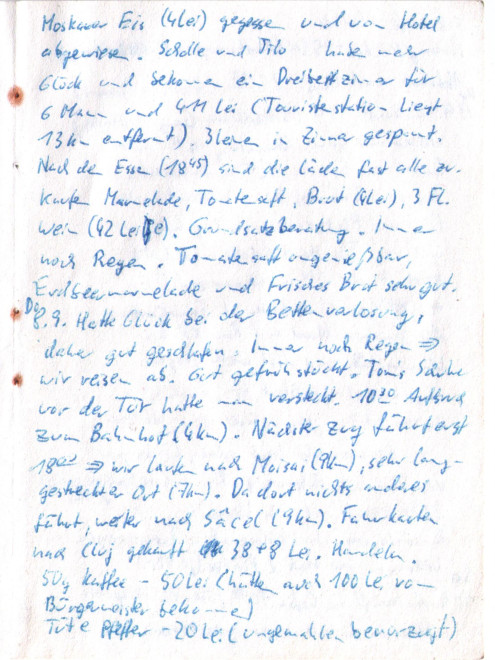 Moskauer Eis (4Lei) gegessen und vom Hotel
abgewiesen. Scholle und Tilo haben mehr
Glück und bekommen ein Dreibettzimmer für
6 Mann und 411 Lei (Touristenstation liegt
13km entfernt). 3 Leinen in Zimmer gespannt.
Nach dem Essen (18⁴⁵) sind die Läden fast alle zu.
Kaufen Marmelade, Tomatensaft, Brot (4Lei), 3 Fl.
Wein (42 Lei). Grundsatzberatung. Immer
noch Regen. Tomatensaft ungenießbar,
Erdbeermarmelade und Frisches Brot sehr gut.
Do
8.9. Hatte Glück bei der Bettenverlosung,
daher gut geschlafen. Immer noch Regen ⇒
wir reisen ab. Gut gefrühstückt. Tom's Schuhe
vor der Tür hatte man versteckt. 10³⁰ Aufbruch
zum Bahnhof (4km). Nächster Zug fährt erst
18 ⇒ wir laufen nach Moisei (9km), sehr lang-
gestreckter Ort (7km). Da dort nichts anderes
fährt, weiter nach Săcel (9km). Fahrkarten
nach Cluj gekauft 38+8 Lei. Handeln.
50g Kaffee - 50Lei (hätten auch 100 Lei vom
Bürgermeister bekommen)
Tüte Pfeffer - 20Lei (ungemahlen bevorzugt)